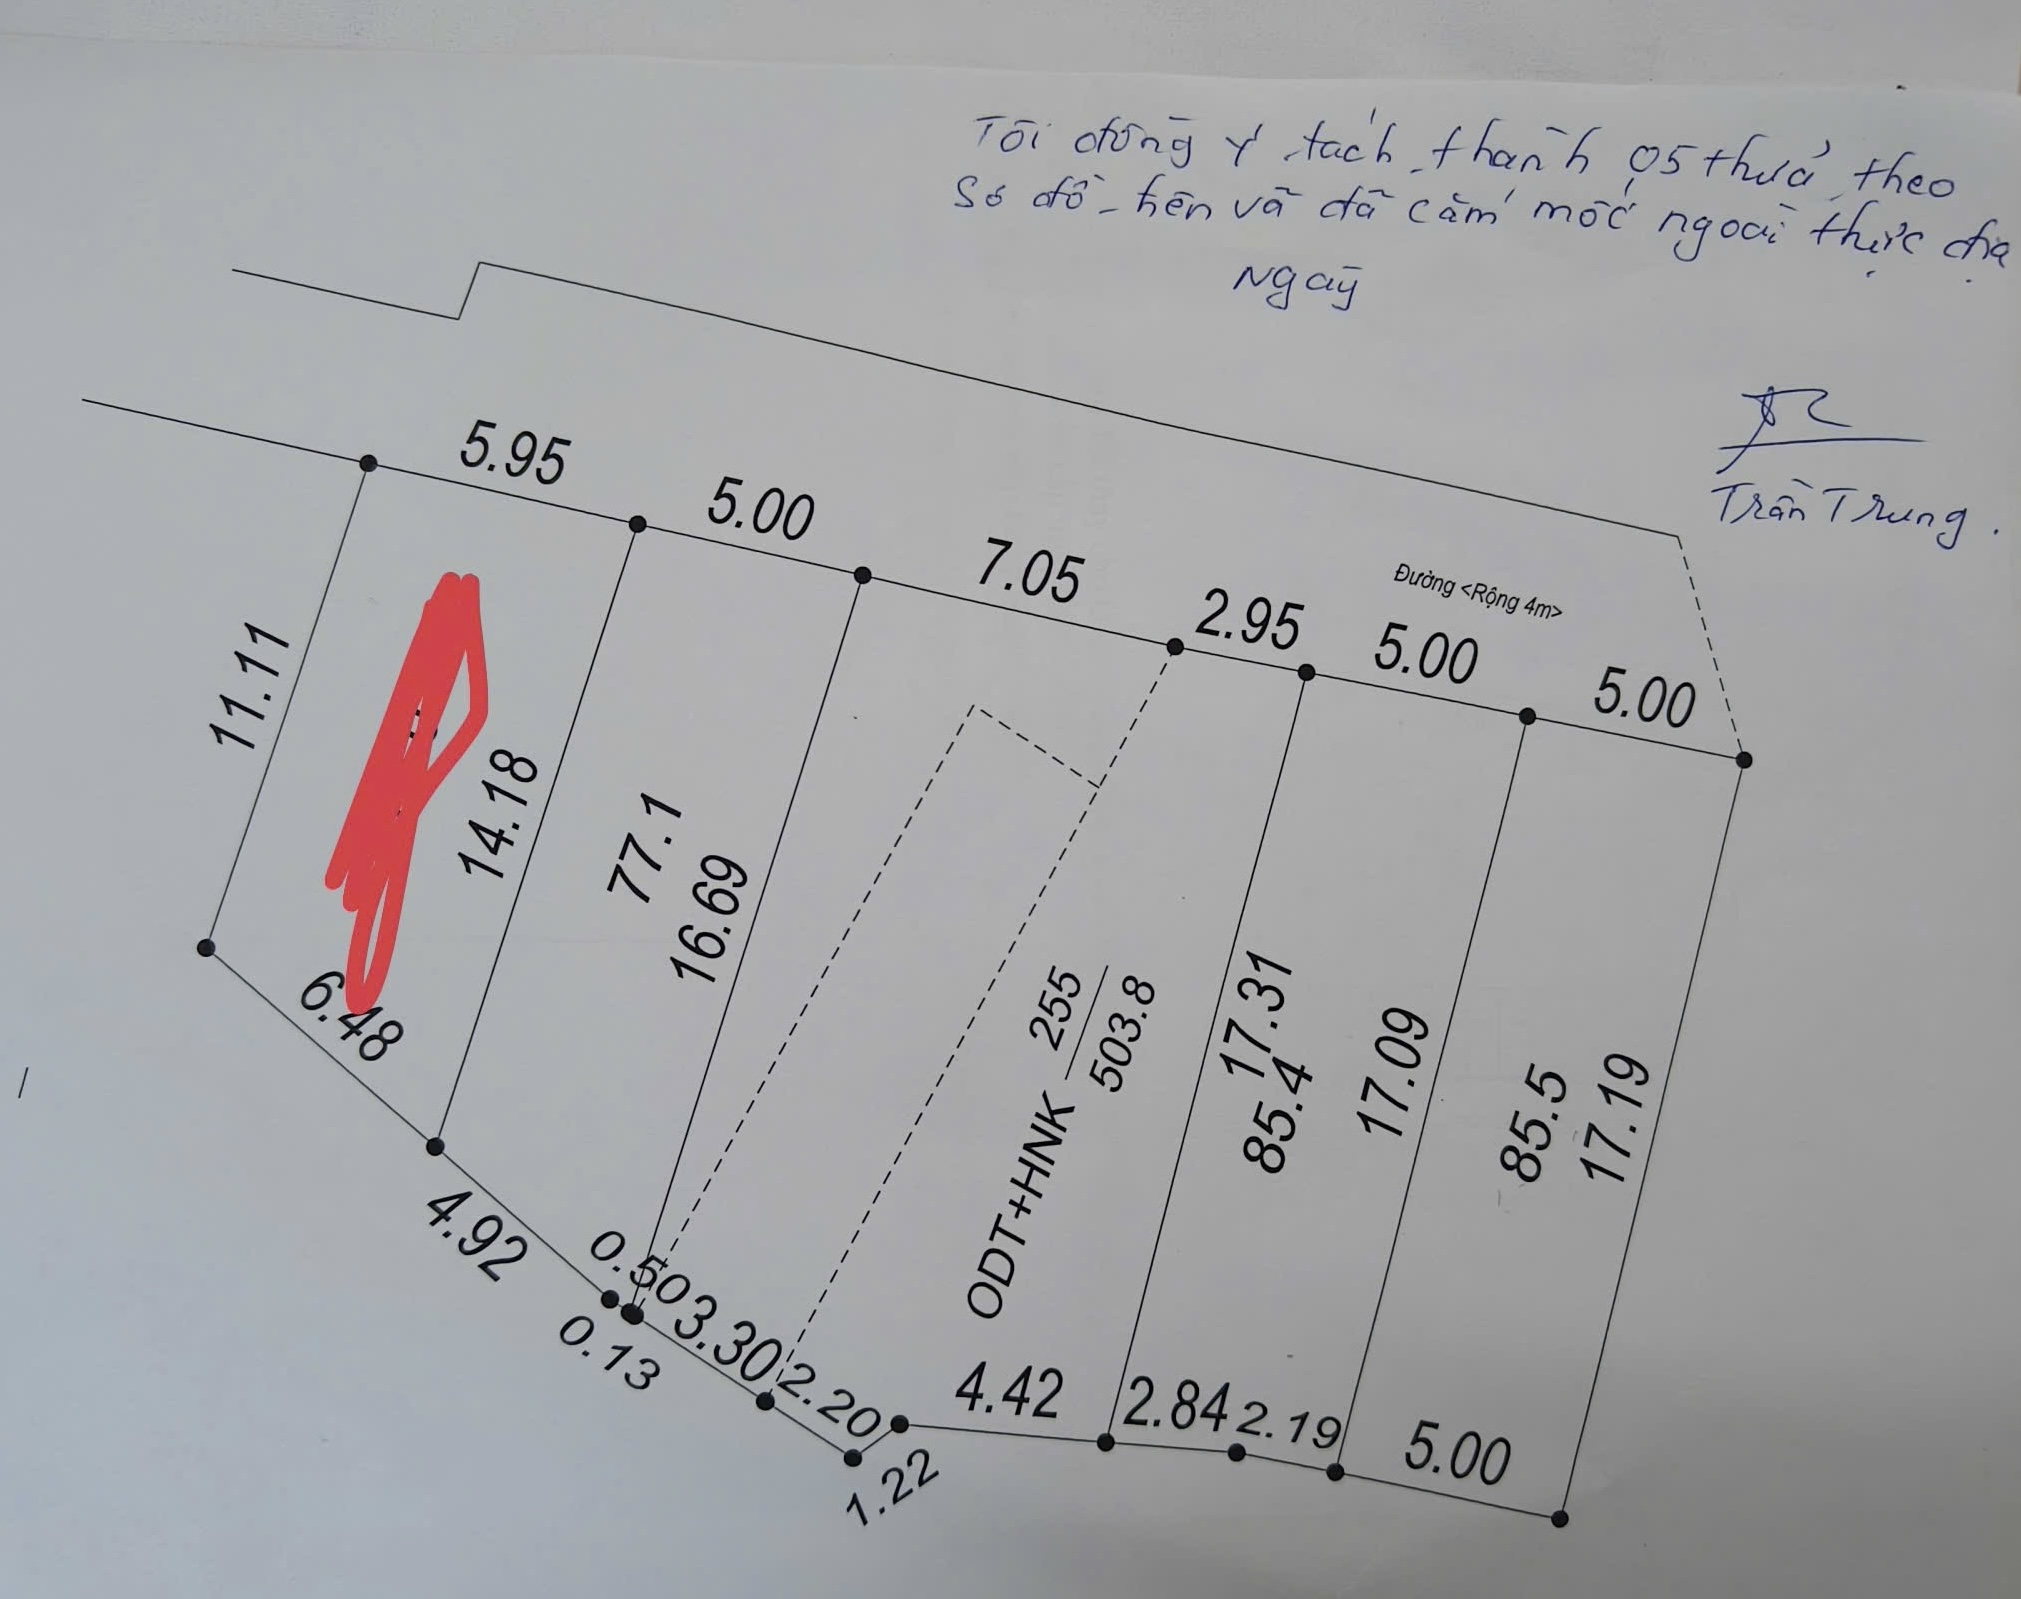 Tôi đồng ý tách thành 05 thửa theo
Sơ đồ trên và đã cắm mốc ngoài thực địa
Ngày
Trần Trung.
5.95
5.00
7.05
2.95
Đường <Rộng 4m>
5.00
5.00
11.11
14.18
77.1
16.69
ODT+HNK 255
503.8
17.31
85.4
17.09
85.5
17.19
6.48
4.92
0.50
0.13
3.30
2.20
1.22
4.42
2.84
2.19
5.00